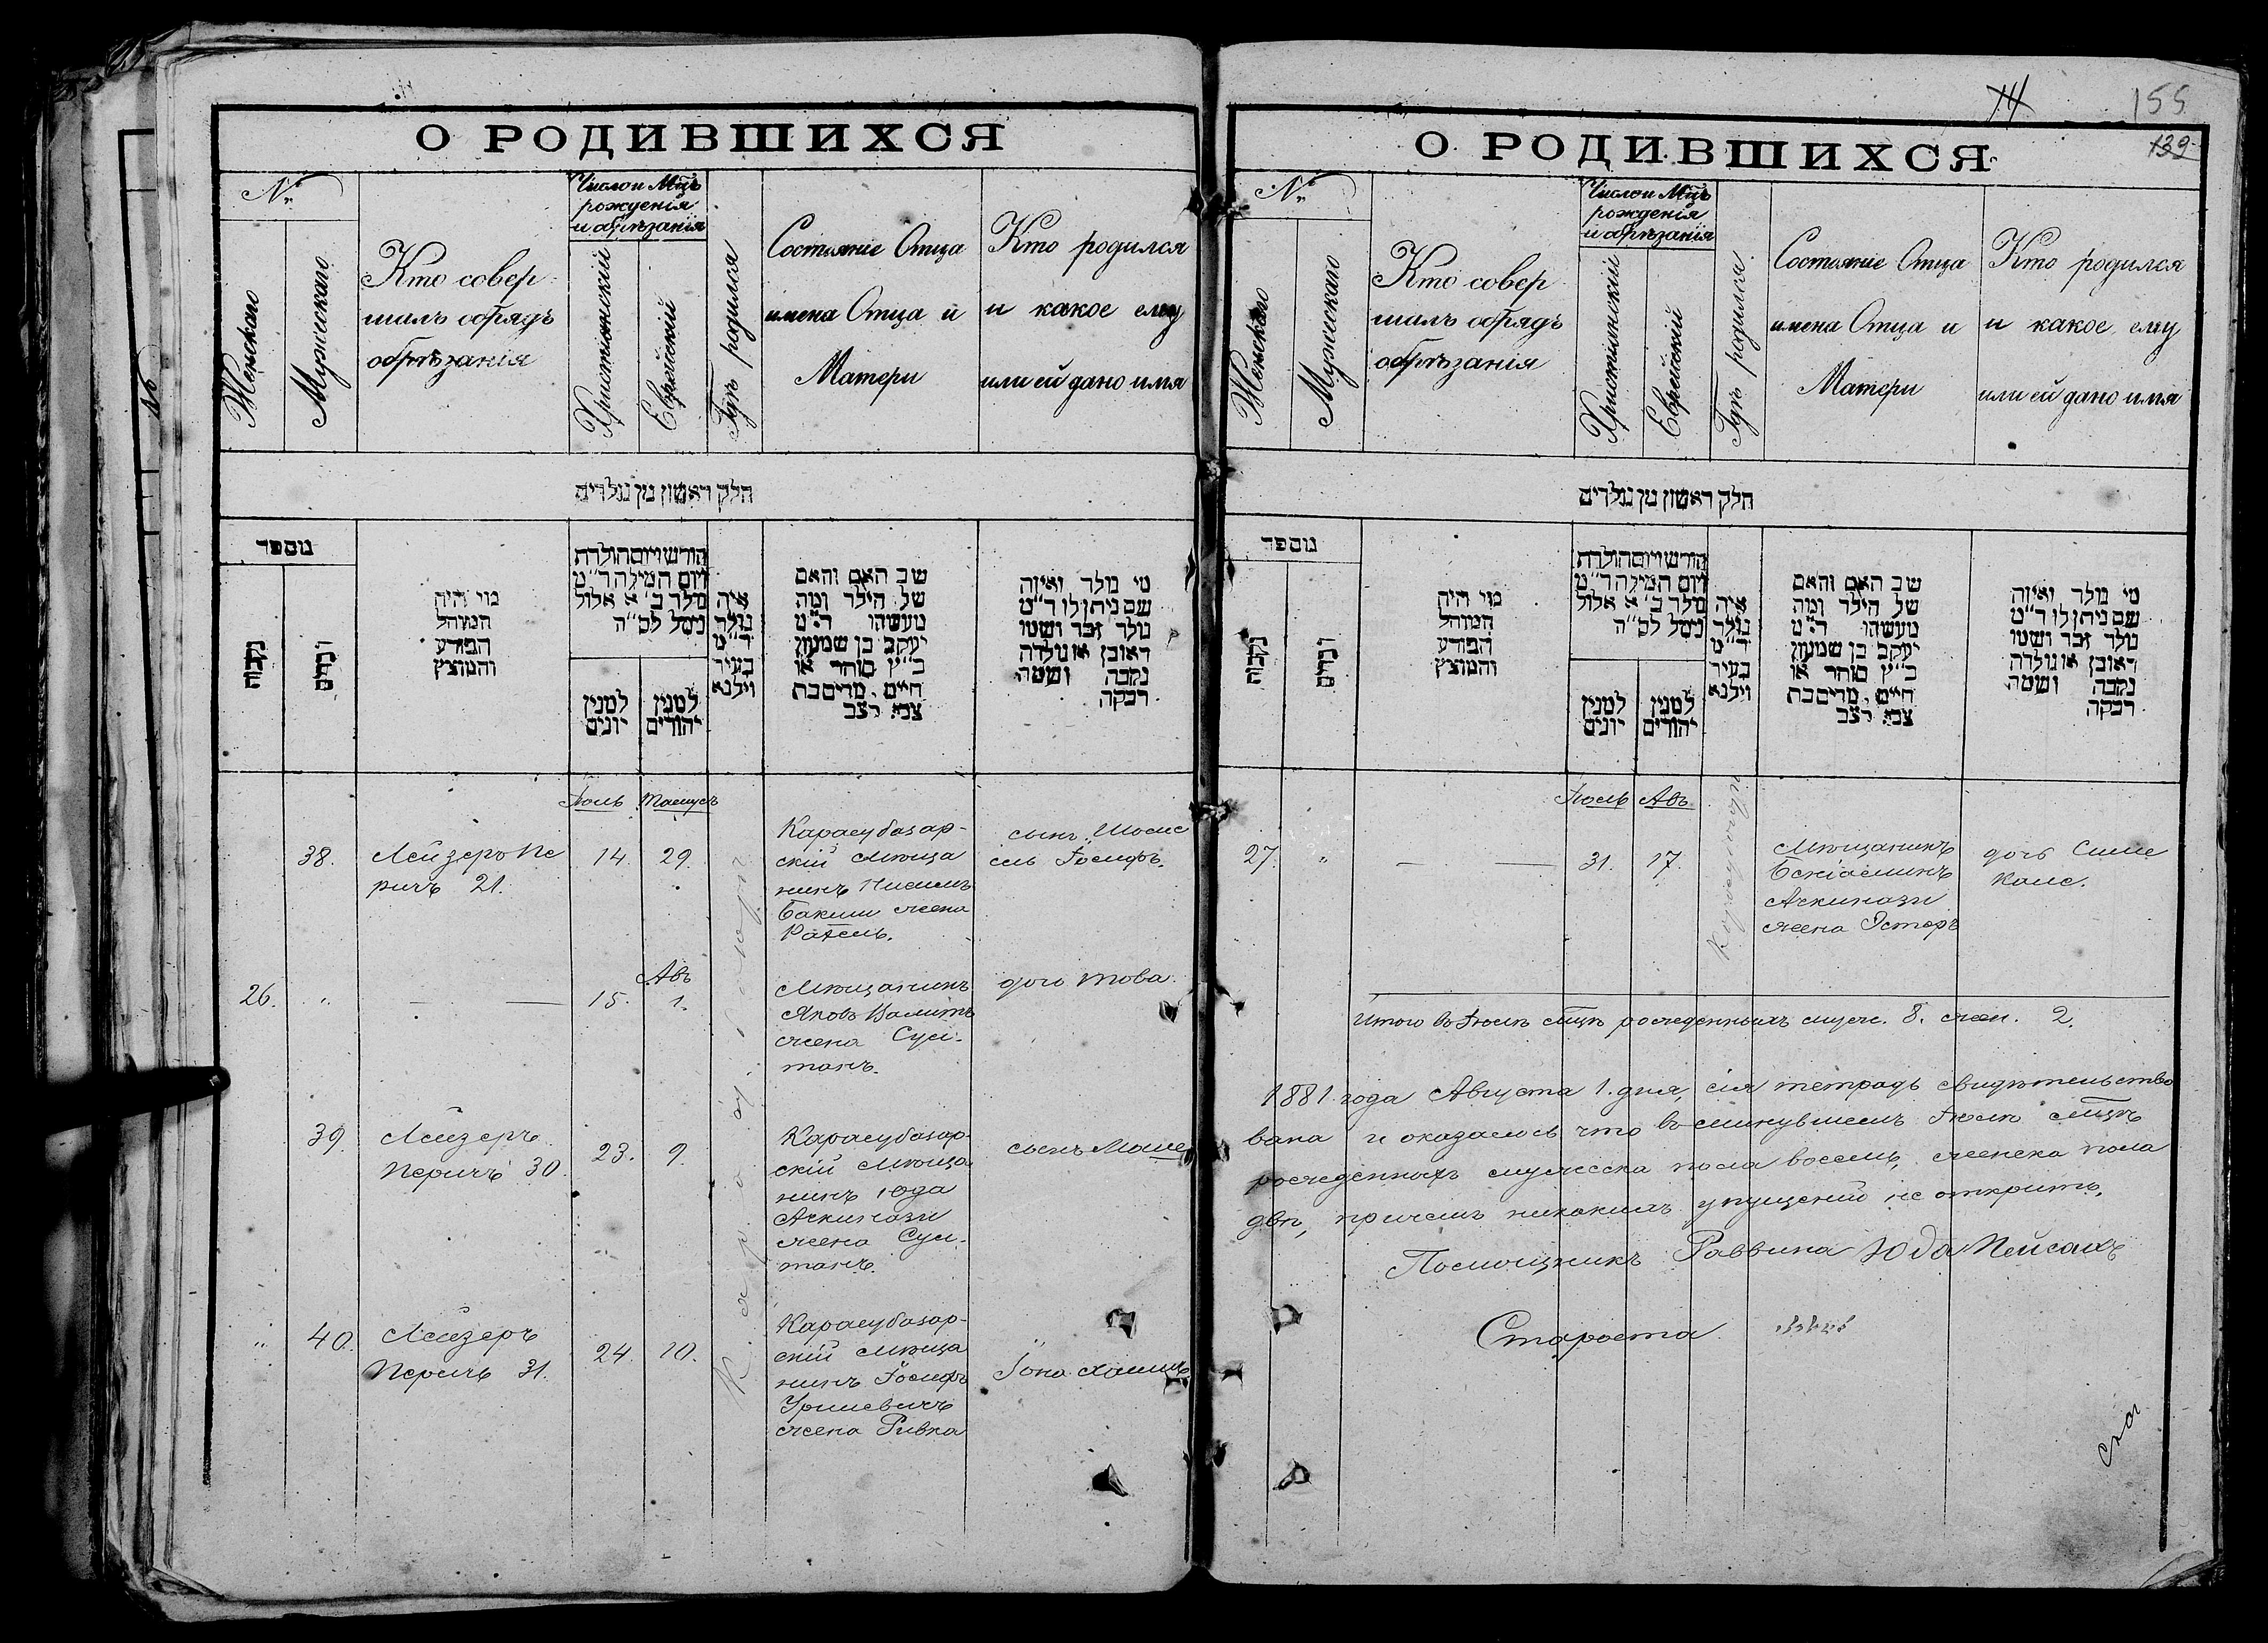 О РОДИВШИХСЯ
№
Женскаго
Мужескаго
Кто совер
шалъ обрядъ
обрѣзанія
Число и Мцъ
рожденія
и обрѣзанія
Христіанскій
Еврейскій
Гдѣ родился
Состояніе Отца
имена Отца и
Матери
Кто родился
и какое ему
или ей дано имя
חלק ראשון מן נולדים
מספר
נקבות
זכרים
מי היה
המוהל
הפורע
והמוצץ
חודש ויום הולדת
ויום המילה ד״מ
נולד ב׳ א אלול
נימל לס״ה
למנין
יונים
למנין
יהודים
איה
נולד
ד״מ
בעיר
ווילנא
שב האם והאם
של הילד ומה
מעשהו ד״מ
יעקב בן שמעון
כ״ץ סוחר או
חיים. מרים בת
צבי. רצב
מי נולד ואיזה
שם ניתן לו ד״מ
נולד זכר ושמו
ראובן או נולדה
נקבה ושמה
רבקה
Іюль Тамузъ
38. Лейзеръ Пе
ричъ 21.
14. 29.
Карасубазар-
скій мѣща
нинъ Нисимъ
Бакши жена
Рахель.
сынъ Шомо
ель Іосифъ.
26. „ — —
15. Авъ
1.
Мѣщанинъ
Яковъ Валитъ
жена Сул-
танъ.
дочь Това.
39. Лейзеръ
Перичъ 30.
23. 9.
Карасубазар-
скій мѣща
нинъ Юда
Ачкинази
жена Сул-
танъ.
сынъ Моше
„ 40. Лейзеръ
Перичъ 31.
24. 10.
Карасубазар-
скій мѣща
нинъ Іосифъ
Уришевичъ
жена Ривка
„
Іона Хаимъ
14
155
139
О РОДИВШИХСЯ
№
Женскаго
Мужескаго
Кто совер
шалъ обрядъ
обрѣзанія
Число и Мцъ
рожденія
и обрѣзанія
Христіанскій
Еврейскій
Гдѣ родился
Состояніе Отца
имена Отца и
Матери
Кто родился
и какое ему
или ей дано имя
חלק ראשון מן נולדים
מספר
נקבות
זכרים
מי היה
המוהל
הפורע
והמוצץ
חודש ויום הולדת
ויום המילה ד״מ
נולד ב׳ א אלול
נימל לס״ה
למנין
יונים
למנין
יהודים
איה
נולד
ד״מ
בעיר
ווילנא
שב האם והאם
של הילד ומה
מעשהו ד״מ
יעקב בן שמעון
כ״ץ סוחר או
חיים. מרים בת
צבי. רצב
מי נולד ואיזה
שם ניתן לו ד״מ
נולד זכר ושמו
ראובן או נולדה
נקבה ושמה
רבקה
Іюль Авъ
27. „ — —
31. 17.
Мѣщанинъ
Беніаминъ
Ачкинази
жена Эстеръ
дочь Симе
Каме.
Итого въ Іюлѣ мцѣ рожденныхъ муж. 8. жен. 2.
1881 года Августа 1. дня, сія тетрадь свидѣтельство
вана и оказалось что въ минувшемъ Іюлѣ мцѣ
рожденныхъ мужеска пола восемь, женска пола
двѣ, причемъ никакихъ упущеній не открыто.
Помощникъ Раввина Юда Пейсахъ
Староста